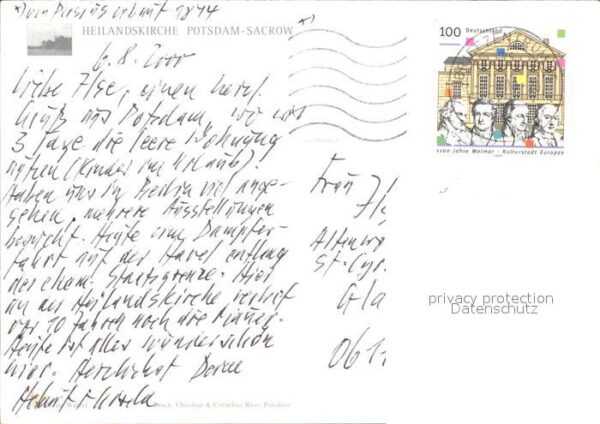 *) von Persius erbaut 1844
HEILANDSKIRCHE POTSDAM-SACROW *)
6.8.2000
Liebe Ilse, einen herzl.
Gruß aus Potsdam, wo wir
3 Tage die leere Wohnung
nutzen (Kinder im Urlaub).
Haben uns in Berlin viel ange-
sehen, mehrere Ausstellungen
besucht. Heute eine Dampfer-
fahrt auf der Havel entlang
der ehem. Staatsgrenze. Hier
an der Heilandskirche verlief
vor 10 Jahren noch die Mauer.
Heute ist alles wunderschön
hier. Herzlichst Deine
Helmut +
Druck: Christian & Cornelius Rüss, Potsdam
100 Deutschland
1100 Jahre Weimar - Kulturstadt Europas
1999
BRIEFZENTRUM
Frau Il
Altenw
St.-Cyr
Gla
061
privacy protection
Datenschutz